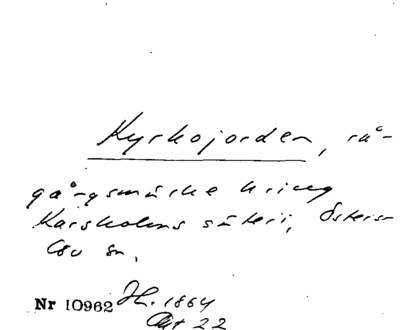 Kyrkojorden, rå-
gångsmärke kring
Karsholms säteri, Österslöv sn.
Nr 10962 JH. 1864
Akt 22